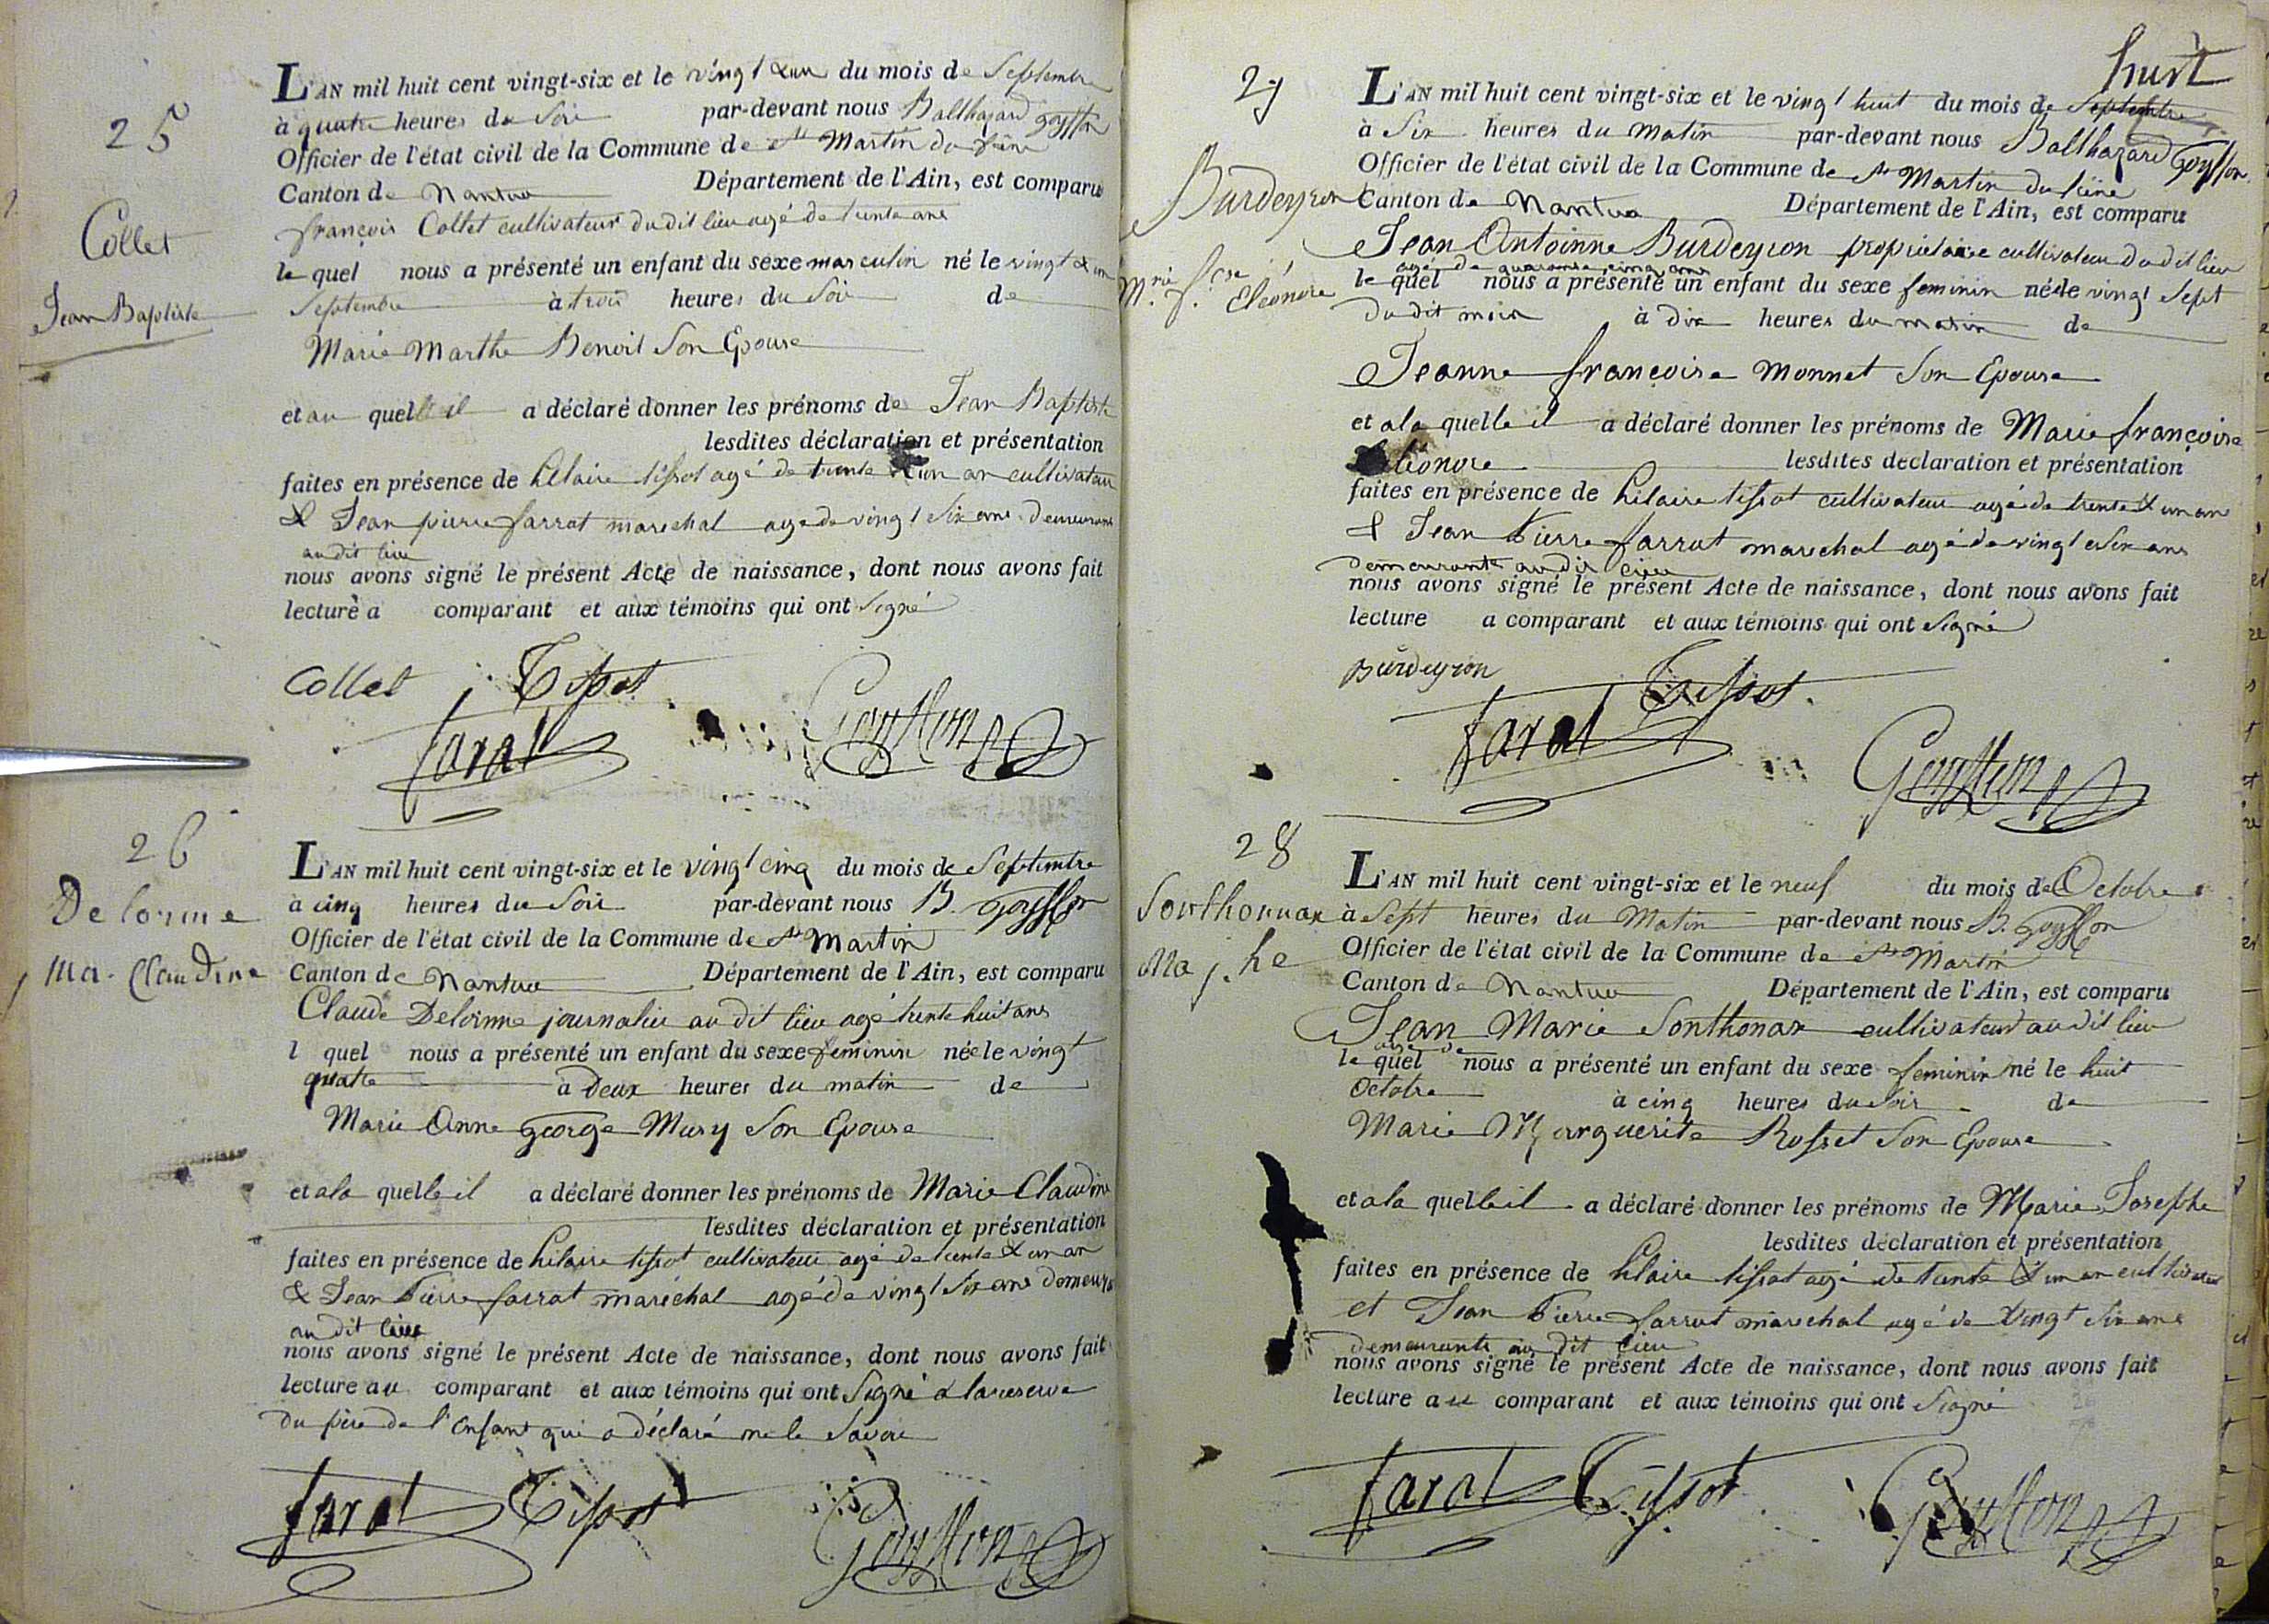 25
Collet
Jean Baptiste
L'AN mil huit cent vingt-six et le vingt & un du mois de Septembre
à quatre heures du Soir par-devant nous Balthazard Goyffon
Officier de l'état civil de la Commune de St Martin du frêne
Canton de Nantua Département de l'Ain, est comparu
françois Collet cultivateur du dit lieu agé de trente ans
le quel nous a présenté un enfant du sexe masculin né le vingt & un
Septembre à trois heures du Soir de
Marie Marthe Benoit Son Epouse
et au quel il a déclaré donner les prénoms de Jean Baptiste
lesdites déclaration et présentation
faites en présence de hilaire tissot agé de trente & un an cultivateur
& Jean pierre farrat marechal agé de vingt Six ans demeurant
au dit lieu
nous avons signé le présent Acte de naissance, dont nous avons fait
lecture a comparant et aux témoins qui ont Signé
Collet Tissot
farat Goyffon
26
Delorme
Ma. Claudine
L'AN mil huit cent vingt-six et le vingt cinq du mois de Septembre
à cinq heures du Soir par-devant nous B. Goyffon
Officier de l'état civil de la Commune de St Martin
Canton de Nantua Département de l'Ain, est comparu
Claude Delorme journalier au dit lieu agé trente huit ans
l quel nous a présenté un enfant du sexe feminin née le vingt
quatre à Deux heures du matin de
Marie Anne George Mury Son Epouse
et a la quelle il a déclaré donner les prénoms de Marie Claudine
lesdites déclaration et présentation
faites en présence de hilaire tissot cultivateur agé de trente & un an
& Jean Pierre farrat maréchal agé de vingt Six ans demeurs
au dit lieu
nous avons signé le présent Acte de naissance, dont nous avons fait
lecture au comparant et aux témoins qui ont Signé a la reserve
Du père de l'enfant qui a déclaré ne le Savoir
farat Tissot Goyffon
huit
27
Burdeyron
M.rie f.cse Eléonore
L'AN mil huit cent vingt-six et le vingt huit du mois de Septembre
à Six heures du Matin par-devant nous Balthazard Goyffon
Officier de l'état civil de la Commune de St Martin du frêne
Canton de Nantua Département de l'Ain, est comparu
Jean Antoinne Burdeyron proprietaire cultivateur du dit lieu
agé de quarante cinq ans
le quel nous a présenté un enfant du sexe feminin née le vingt Sept
du dit mois à dix heures du matin de
Jeanne françoise Monnet Son Epouse
et a la quelle il a déclaré donner les prénoms de Marie françoise
Eléonore lesdites déclaration et présentation
faites en présence de hilaire tissot cultivateur agé de trente & un an
& Jean Pierre farrat marechal agé de vingt Six ans
demeurants au dit lieu
nous avons signé le présent Acte de naissance, dont nous avons fait
lecture a comparant et aux témoins qui ont Signé
Burdeyron Tissot
farat Goyffon
28
Sonthonnax
Ma j.he
L'AN mil huit cent vingt-six et le neuf du mois de Octobre
à Sept heures du Matin par-devant nous B. Goyffon
Officier de l'état civil de la Commune de St Martin
Canton de Nantua Département de l'Ain, est comparu
Jean Marie Sonthonax cultivateur au dit lieu
agé de
le quel nous a présenté un enfant du sexe feminin né le huit
Octobre à cinq heures du Soir de
Marie Marguerite Rosset Son Epouse
et a la quelle il a déclaré donner les prénoms de Marie Josephe
lesdites déclaration et présentation
faites en présence de hilaire tissot agé de trente & un an cultivateur
et Jean Pierre farrat marechal agé de vingt Six ans
demeurants au dit lieu
nous avons signé le présent Acte de naissance, dont nous avons fait
lecture au comparant et aux témoins qui ont Signé
farat Tissot Goyffon